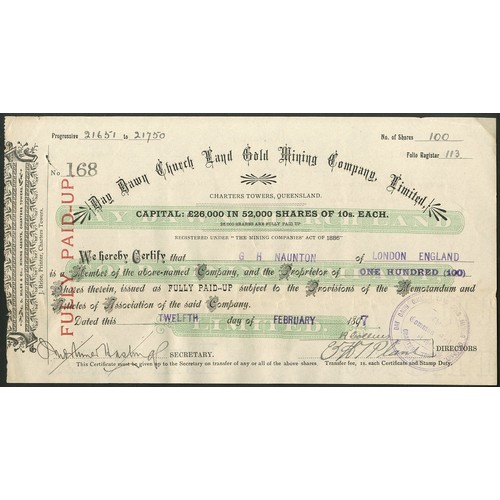 Progressive 21651 to 21750
No. of Shares 100
Folio Register 113
No 168
Day Dawn Church Land Gold Mining Company, Limited,
CHARTERS TOWERS, QUEENSLAND.
CAPITAL: £26,000 IN 52,000 SHARES OF 10s. EACH.
SHARES ARE FULLY PAID UP
REGISTERED UNDER "THE MINING COMPANIES' ACT OF 1886"
We hereby Certify that G H NAUNTON of LONDON ENGLAND
is a Member of the above-named Company, and the Proprietor of ONE HUNDRED (100)
Shares therein, issued as FULLY PAID-UP subject to the Provisions of the Memorandum and
Articles of Association of the said Company.
Dated this TWELFTH day of FEBRUARY 1897
SECRETARY.
DIRECTORS
This Certificate must be given up to the Secretary on transfer of any or all of the above shares. Transfer fee, 1s. each Certificate and Stamp Duty.
FULLY PAID-UP
LIMITED.